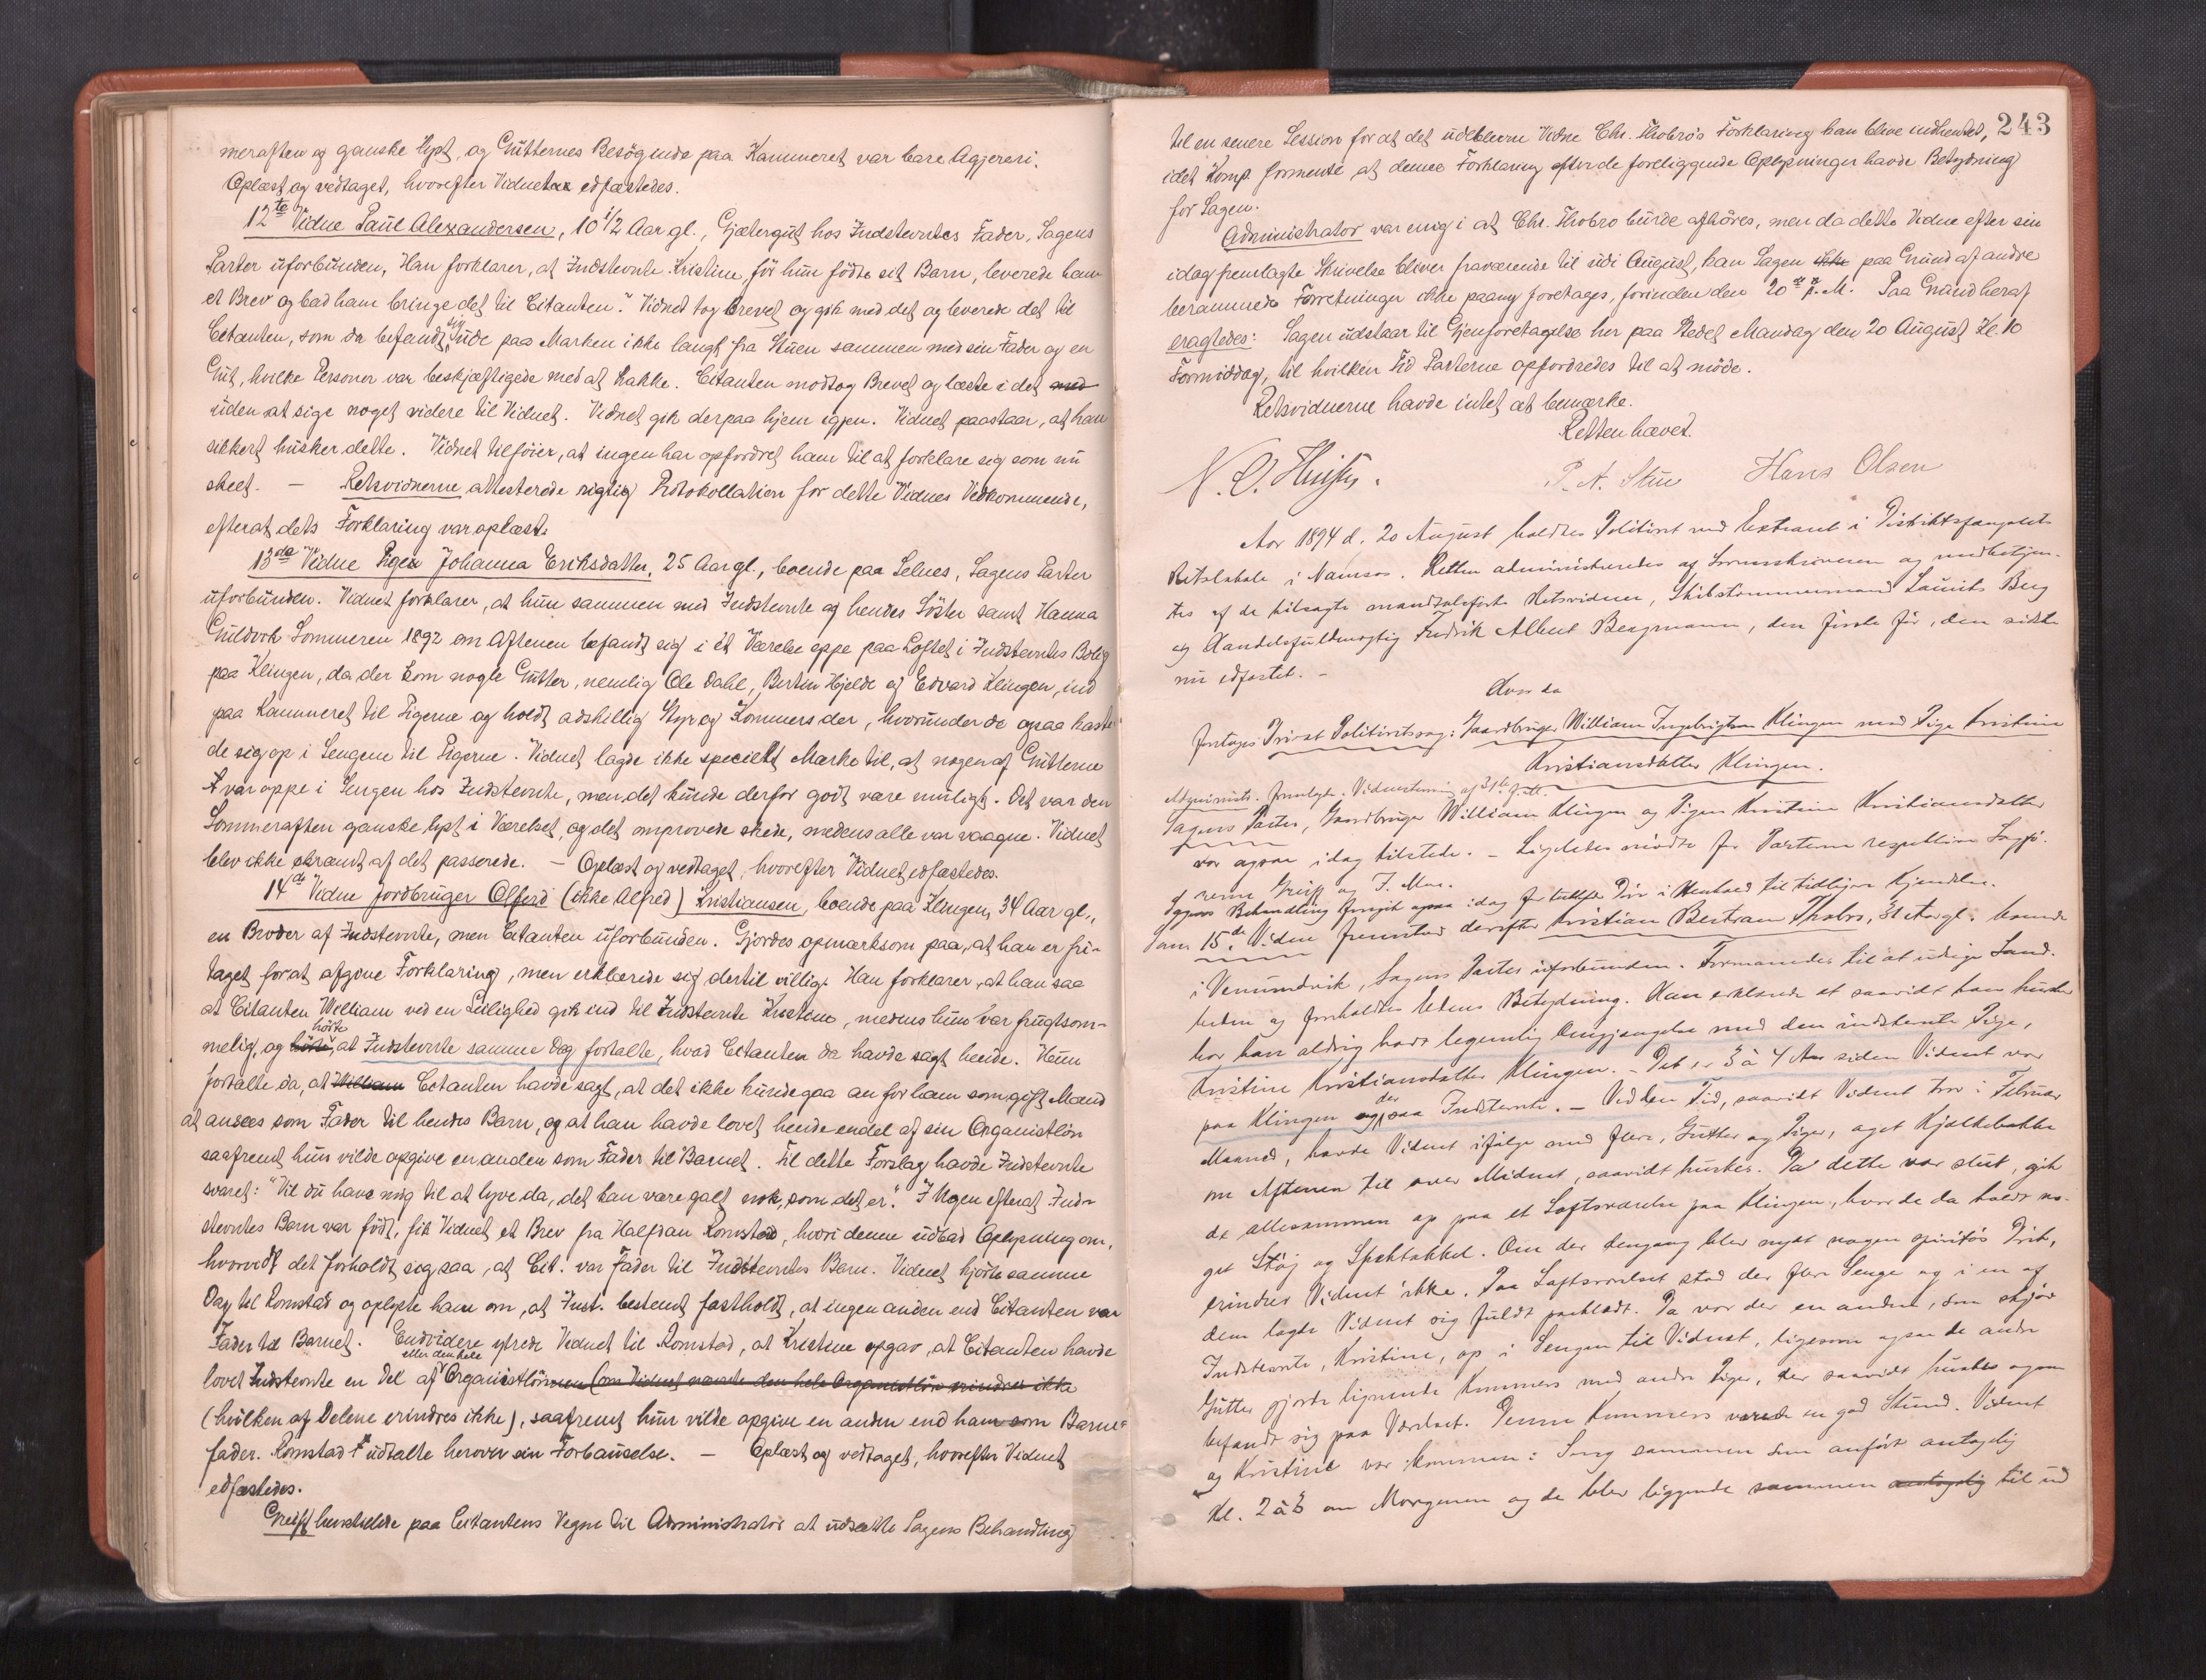 meraften og ganske lyst, og Gutternes Besøgende paa Kammeret var bare Agjereri.
Oplæst og vedtaget, hvorefter Vidnet edfæstedes.
12te Vidne Paul Alexandersen, 10 1/2 Aar gl., Gjætergut hos Indstevntes Fader, Sagens
Parter uforbunden. Han forklarer, at Indstevnte Kristine, før hun fødte sit Barn, leverede ham
et Brev og bad ham bringe det til Citanten. Vidnet tog Brevet og gik med det og leverede det til
Citanten, som da befandt sig ude paa Marken ikke langt fra Stuen sammen med sin Fader og en
Gut, hvilke Personer var beskjæftigede med at hakke. Citanten modtog Brevet og læste i det med
uden at sige noget videre til Vidnet. Vidnet gik derpaa hjem igjen. Vidnet paastaar, at han
sikkert husker dette. Vidnet tilføier, at ingen har opfordret ham til at forklare sig som nu
skeet. — Retsvidnerne attesterede rigtig Protokollation for dette Vidnes Vedkommende,
efterat dets Forklaring var oplæst.
13de Vidne Pigen Johanna Eriksdatter, 25 Aar gl., boende paa Selnes, Sagens Parter
uforbunden. Vidnet forklarer, at hun sammen med Indstevnte og hendes Søster samt Hanna
Guldvik Sommeren 1892 om Aftenen befandt sig i et Værelse oppe paa Loftet i Indstevntes Bolig
paa Klingen, da der kom nogle Gutter, nemlig Ole Dahl, Bertin Hjelde og Edvard Klingen, ind
paa Kammeret til Pigerne og holdt adskillig Styr og Kommers der, hvorunder de ogsaa kaste
de sig op i Sengene til Pigerne. Vidnet lagde ikke specielt Mærke til, at nogen af Gutterne
var oppe i Sengen hos Indstevnte, men det kunde derfor godt være muligt. Det var den
Sommeraften ganske lyst i Værelset, og det omprovede skede, medens alle var vaagne. Vidnet
blev ikke skræmt af det passerede. — Oplæst og vedtaget, hvorefter Vidnet edfæstedes.
14de Vidne Jordbruger Olferd (ikke Alfred) Kristiansen, boende paa Klingen, 34 Aar gl.,
en Broder af Indstevnte, men Citanten uforbunden. Gjordes opmærksom paa, at han er fri-
taget for at afgive Forklaring, men erklærede sig dertil villig. Han forklarer, at han saa
at Citanten William ved en Leilighed gik ind til Indstevnte Kristine, medens hun var frugtsom-
melig, og hørte hørte, at Indstevnte samme Dag fortalte, hvad Citanten da havde sagt hende. Hun
fortalte da, at William Citanten havde sagt, at det ikke kunde gaa an for ham som gift Mand
at ansees som Fader til hendes Barn, og at han havde lovet hende endel af sin Organistløn
saafremt hun vilde opgive en anden som Fader til Barnet. Til dette Forslag havde Indstevnte
svaret: "Vil du have mig til at lyve da, det kan være galt nok, som det er." I Ugen efterat Ind-
stevntes Barn var født, fik Vidnet et Brev fra Halfdan Romstad, hvori denne udbad Oplysning om,
hvorvidt det forholdt sig saa, at Cit. var Fader til Indstevntes Barn. Vidnet kjørte samme
Dag til Romstad og oplyste ham om, at Inst. bestemt fastholdt, at ingen anden end Citanten var
Fader til Barnet. Endvidere ytrede Vidnet til Romstad, at Kristine opgav, at Citanten havde
lovet Indstevnte en Del af eller den hele Organistlønnen (om Vidnet nævnte den hele Organistløn erindres ikke
(hvilken af Delene erindres ikke), saafremt hun vilde opgive en anden end ham som Barne-
fader. Romstad udtalte herover sin Forbauselse. — Oplæst og vedtaget, hvorefter Vidnet
edfæstedes.
Greiff henstillede paa Citantens Vegne til Administrator at udsætte Sagens Behandling
243
til en senere Session for at det udeblevne Vidne Chr. Thobro's Forklaring kan blive indhentet,
idet Komp. formente at denne Forklaring efter de foreliggende Oplysninger havde Betydning
for Sagen.
Administrator var enig i at Chr. Thobro burde afhøres, men da dette Vidne efter sin
idag fremlagte Skrivelse bliver fraværende til ud i August, kan Sagen ikke paa Grund af andre
berammede Forretninger ikke paany foretages, forinden den 20de p. M. Paa Grund heraf
eragtedes: Sagen udstaar til Gjenforetagelse her paa Stedet Mandag den 20 August Kl. 10
Formiddag, til hvilken Tid Parterne opfordredes til at møde.
Retsvidnerne havde intet at bemærke.
Retten hævet.
P. A. Stene Hans Olsen
Aar 1894 d. 20 August holdtes Politiret med Extraret i Distriktsfængslets
Retslokale i Namsos. Retten administreredes af Sorenskriveren og medbetjen-
tes af de tilsagte mandtalsførte Retsvidner, Skibstømmermand Laurits Berg
og Handelsfuldmægtig Fredrik Albert Bergmann, den første før, den sidste
nu edfæstet. —
Hvor da
foretoges Privat Politiretssag: Gaardbruger William Ingebrigtsen Klingen mod Pige Kristine
Kristiansdatter Klingen.
Administr. fremlagde Vidnestevning af 31te f. M.
Sagens Parter, Gaardbruger William Klingen og Pigen Kristine Kristiansdatter
var ogsaa idag tilstede. — Ligeledes mødte for Parterne respektive Sagfø-
rerne Greiff og J. Moe.
Sagens Behandling foregik ogsaa idag for lukkede Døre i Henhold til tidligere Kjendelse.
Som 15de Vidne fremstod derefter Kristian Bertram Thobro, 31 Aar gl. boende
i Vemundvik, Sagens Parter uforbunden. Formanedes til at udsige Sand-
heden og foreholdtes Edens Betydning. Han erklærede at saavidt han husker
har han aldrig havt legemlig Omgjængelse med den indstevnte Pige,
Kristine Kristiansdatter Klingen. — Det er 3 à 4 Aar siden Vidnet var
paa Klingen og der saa Indstevnte. — Ved den Tid, saavidt Vidnet tror i Februar
Maaned, havde Vidnet ifølge med flere, Gutter og Piger, aget Kjælkebakke
om Aftenen til over Midnat, saavidt huskes. Da dette var slut, gik
de allesammen op paa et Loftsværelse paa Klingen, hvor de da holdt no-
get Støj og Spektakkel. Om der dengang blev nydt nogen spirituøs Drik,
erindrer Vidnet ikke. Paa Loftsværelset stod der flere Senge og i en af
dem lagde Vidnet sig fuldt paaklædt. Da var der en anden, som skjøv
Indstevnte, Kristine, op i Sengen til Vidnet, ligesom ogsaa de andre
Gutter gjorde lignende Kommers med andre Piger, der saavidt huskes ogsaa
befandt sig paa Værelset. Denne Kommers varede en god Stund. Vidnet
og Kristine var kommen i Seng sammen som anført antagelig
Kl. 2 à 3 om Morgenen og de blev liggende sammen antagelig til ud